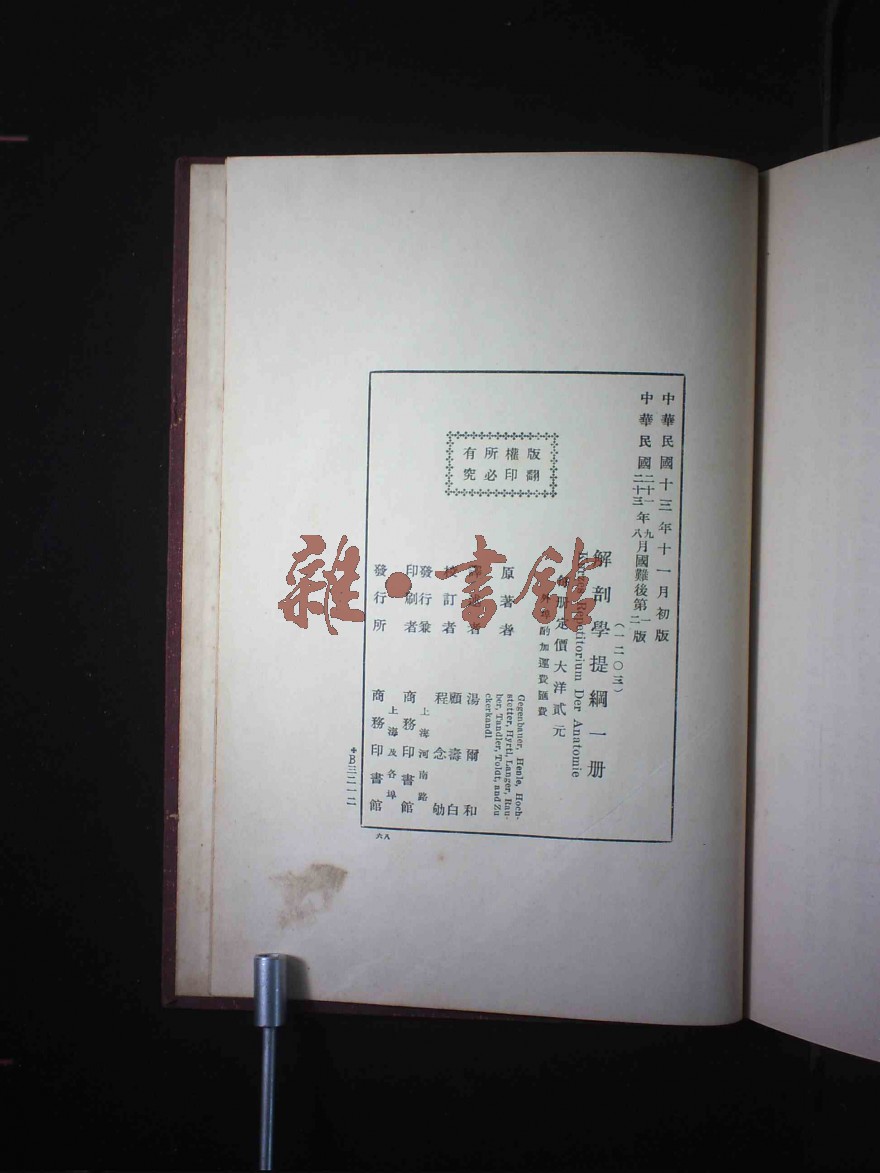 中華民國十三年十一月初版
中華民國二十一年九月國難後第一版
二十三 八 二
(一二〇三)
解剖學提綱一册
Repetitorium Der Anatomie
册定價大洋貳元
酌加運費匯費
版權所有
翻印必究
原著者
Gegenbauer, Henle, Hoch-
stetter, Hyrtl, Langer, Rau-
ber, Tandler, Toldt, and Zu
ckerkandl
者 湯爾和
校訂者 顧壽白
程念劬
發行兼
印刷者
上海河南路
商務印書館
發行所
上海及各埠
商務印書館
✢B三二一二
六八
雜·書館